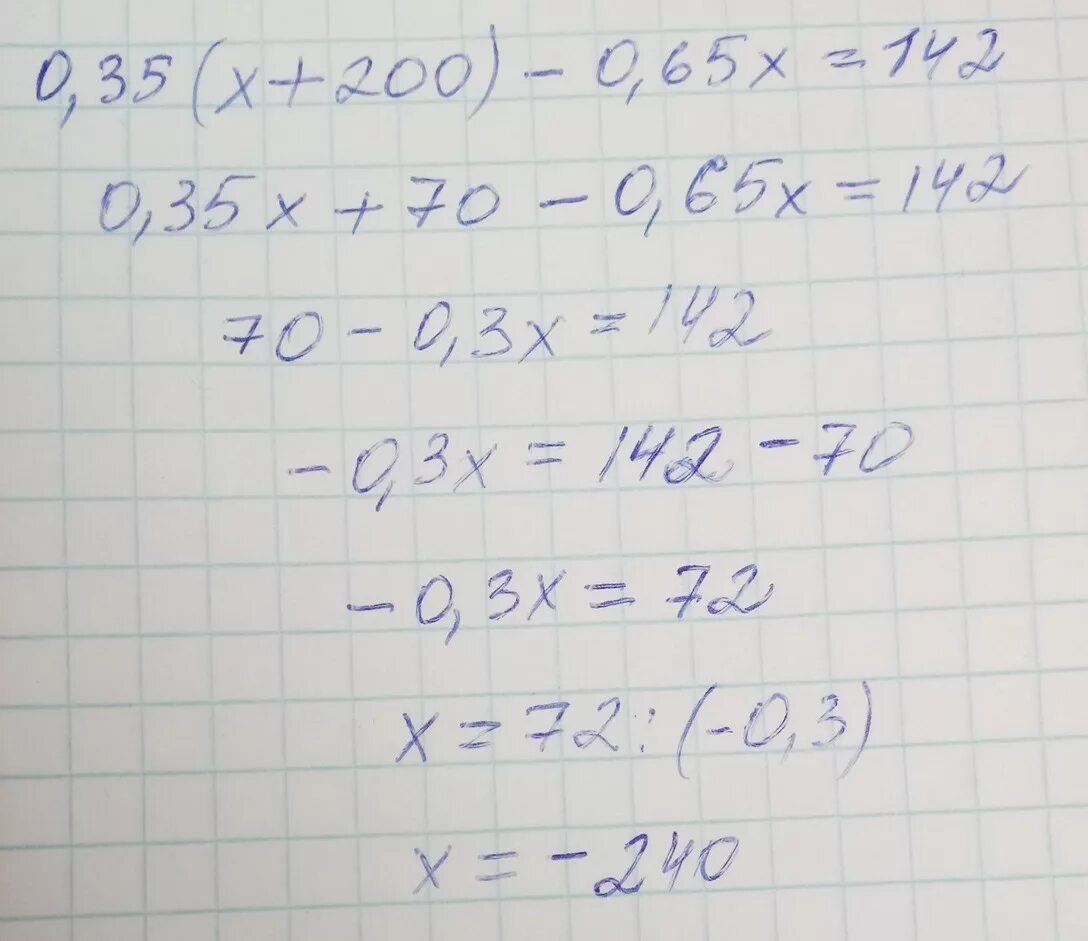 0,35(x+200) - 0,65x = 142
0,35x + 70 - 0,65x = 142
70 - 0,3x = 142
- 0,3x = 142 - 70
- 0,3x = 72
x = 72 : (-0,3)
x = - 240